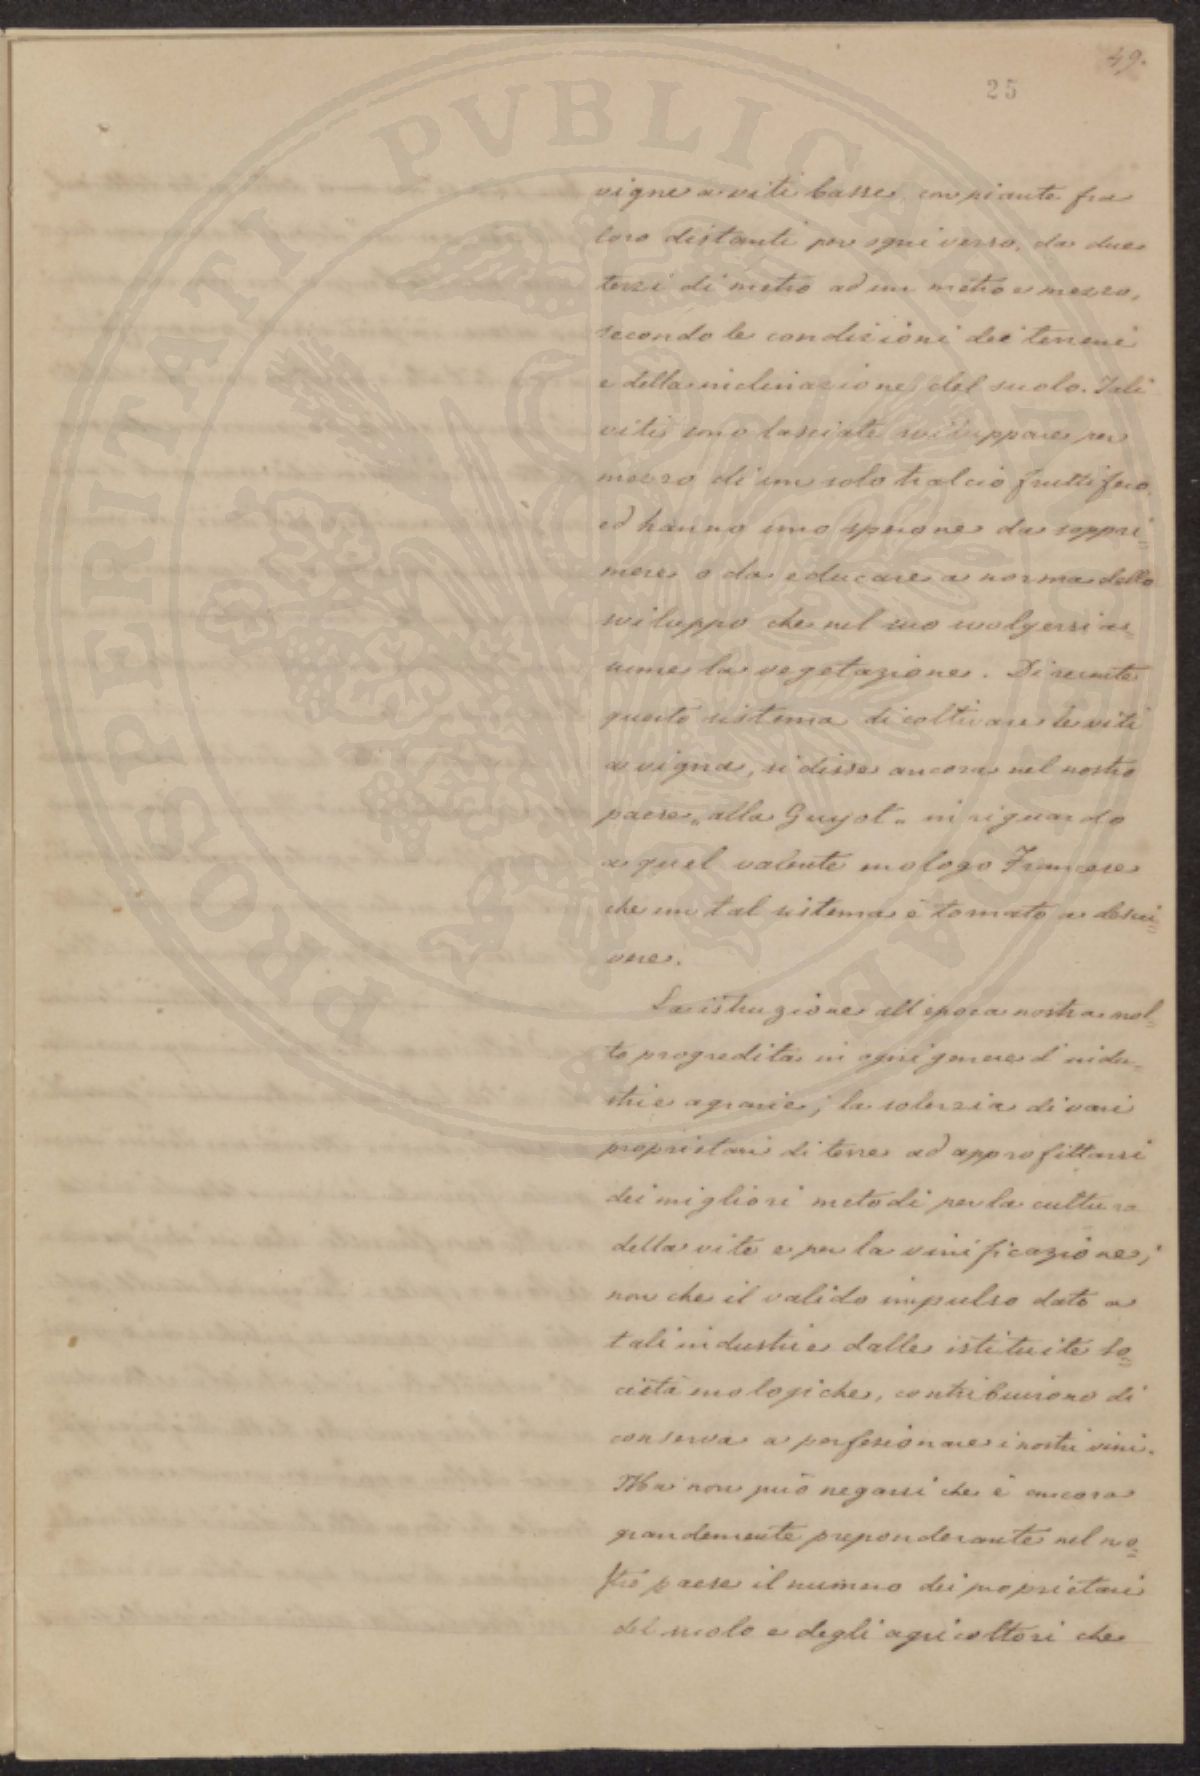 49.
25
PROSPERITATI PVBLICAE AVGENDAE
vigne a viti basse, con piante fra
loro distanti per ogni verso, da due
terzi di metro ad un metro e mezzo,
secondo le condizioni dei terreni
e della inclinazione del suolo. Tali
viti sono lasciate sviluppare per
mezzo di un solo tralcio fruttifero,
ed hanno uno sperone da soppri=
mere o da educare a norma dello
sviluppo che nel suo svolgersi as=
sume la vegetazione. Di recente
questo sistema di coltivare le viti
a vigna, si disse ancora nel nostro
paese „alla Guyot„ in riguardo
a quel valente enologo Francese
che un tal sistema è tornato a descri=
vere.
La istruzione all'epoca nostra mol=
to progredita in ogni genere d'indu=
strie agrarie; la solerzia di vari
proprietari di terre ad approfittarsi
dei migliori metodi per la cultura
della vite e per la vinificazione;
non che il valido impulso dato a
tali industrie dalle istituite So=
cietà enologiche, contribuirono di
conserva a perfezionare i nostri vini.
Ma non può negarsi che è ancora
grandemente preponderante nel no=
stro paese il numero dei proprietari
del suolo e degli agricoltori che